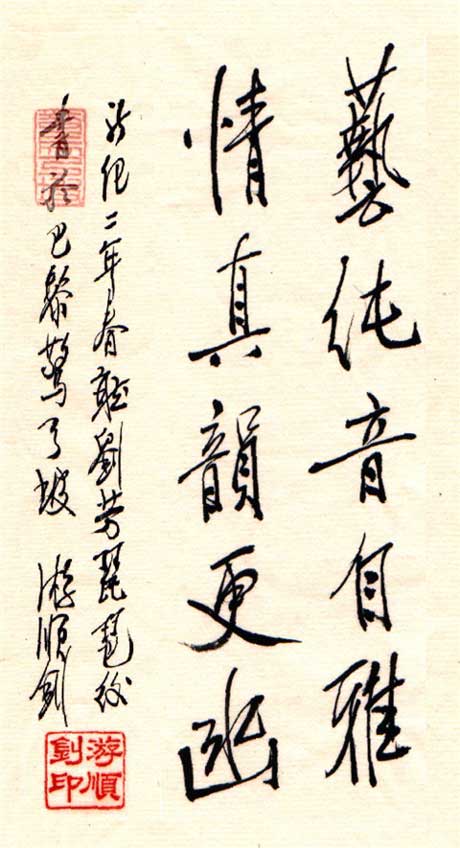 藝純音自雅
情真韻更幽
新紀二年春聽劉芳琵琶後
書於巴黎鶯弓坡 游順釗
游順
釗印